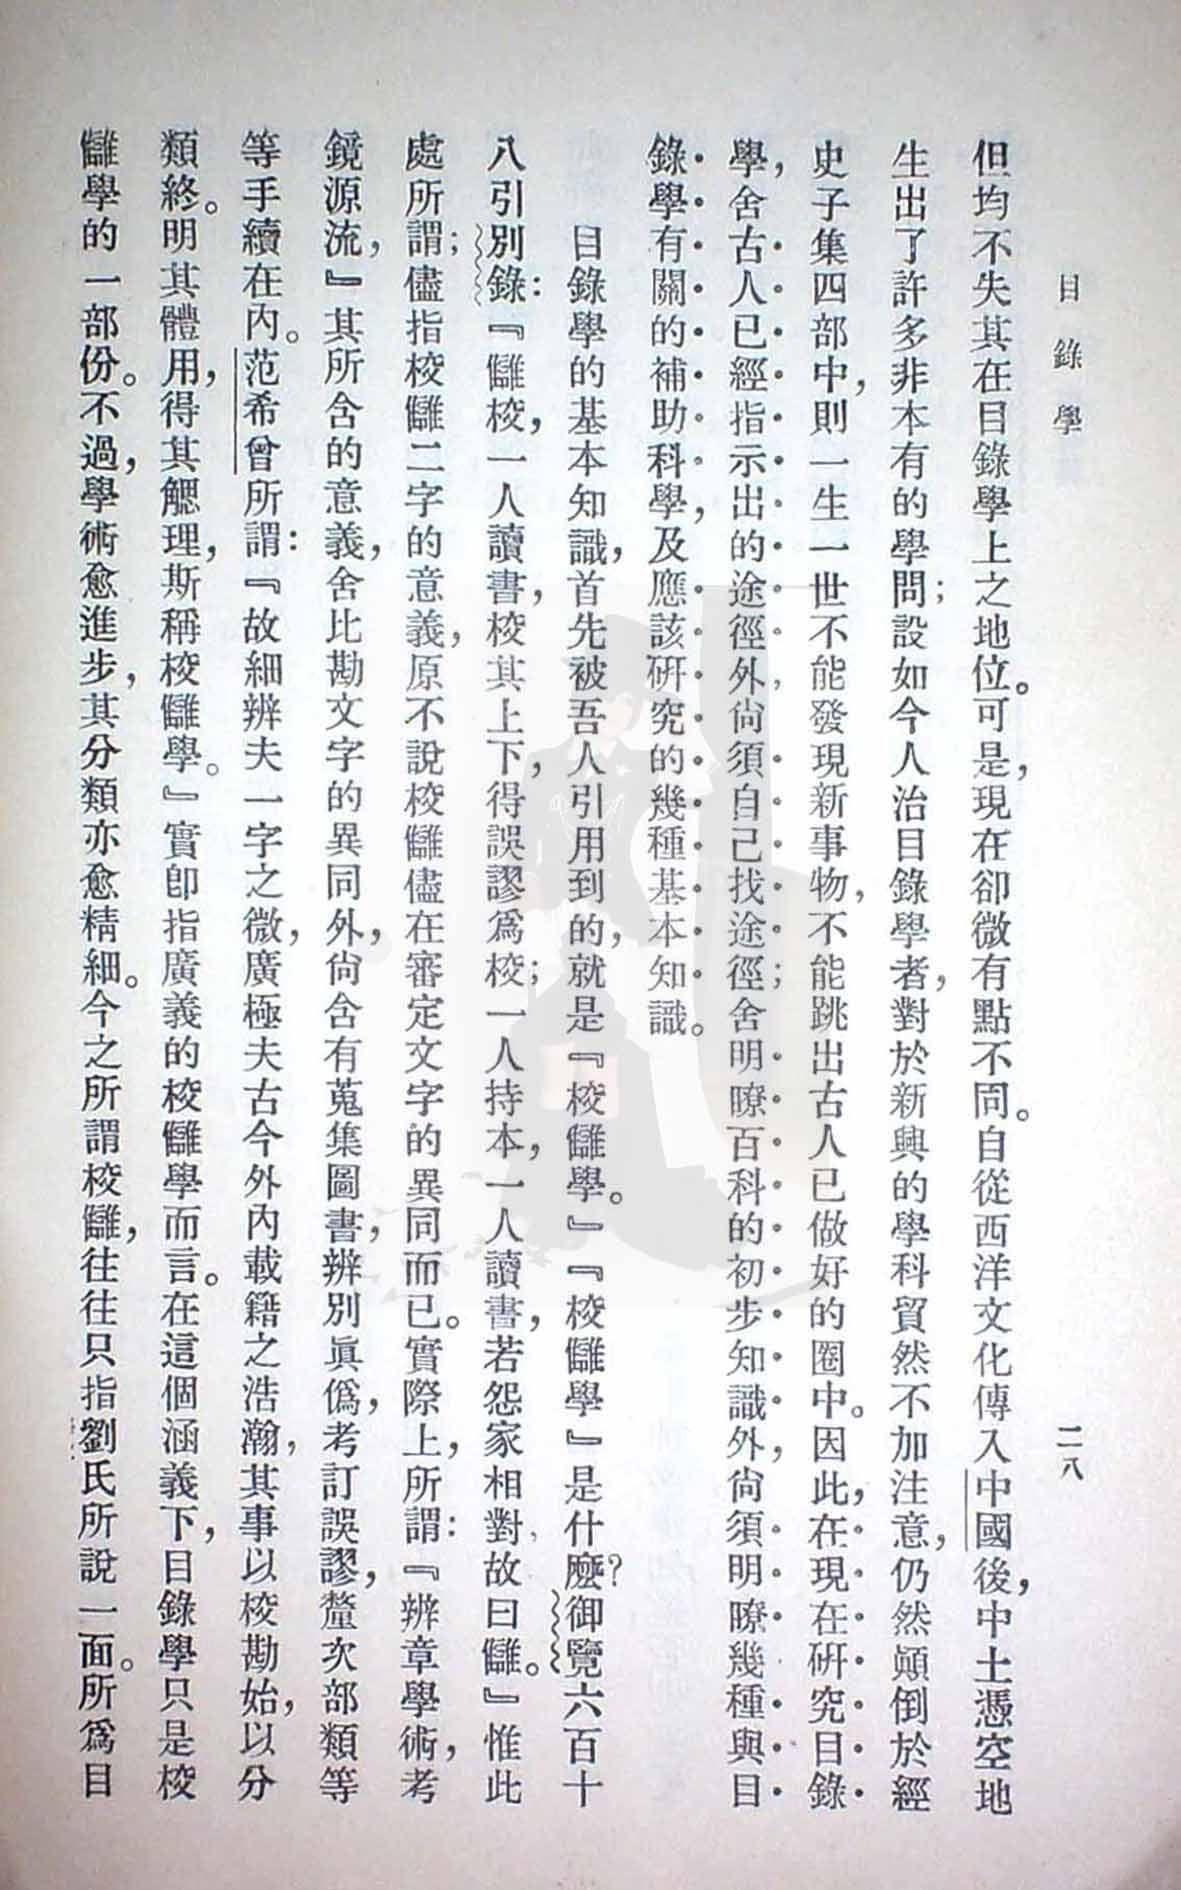 目錄學
二八
但均不失其在目錄學上之地位。可是，現在卻微有點不同。自從西洋文化傳入中國後，中土憑空地
生出了許多非本有的學問；設如今人治目錄學者，對於新興的學科貿然不加注意，仍然顚倒於經
史子集四部中，則一生一世不能發現新事物，不能跳出古人已做好的圈中。因此，在現在研究目錄
學，舍古人已經指示出的途徑外，尙須自己找途徑；舍明瞭百科的初步知識外，尙須明瞭幾種與目
錄學有關的補助科學，及應該研究的幾種基本知識。
目錄學的基本知識，首先被吾人引用到的，就是『校讎學。』『校讎學』是什麼？御覽六百十
八引別錄：『讎校，一人讀書，校其上下，得誤謬爲校；一人持本，一人讀書，若怨家相對，故曰讎。』惟此
處所謂；儘指校讎二字的意義，原不說校讎儘在審定文字的異同而已。實際上，所謂：『辨章學術，考
鏡源流，』其所含的意義，舍比勘文字的異同外，尙含有蒐集圖書，辨別眞僞，考訂誤謬，釐次部類等
等手續在內。范希曾所謂：『故細辨夫一字之微，廣極夫古今外內載籍之浩瀚，其事以校勘始，以分
類終。明其體用，得其䚡理，斯稱校讎學。』實卽指廣義的校讎學而言。在這個涵義下，目錄學只是校
讎學的一部份。不過，學術愈進步，其分類亦愈精細。今之所謂校讎，往往只指劉氏所說一面。所爲目